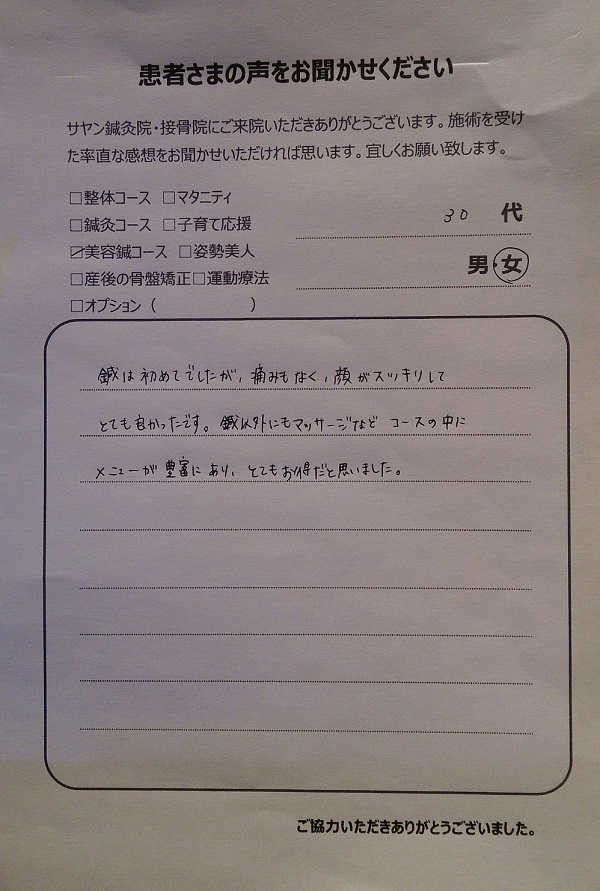 患者さまの声をお聞かせください
サヤン鍼灸院・接骨院にご来院いただきありがとうございます。施術を受け
た率直な感想をお聞かせいただければ思います。宜しくお願い致します。
□整体コース □マタニティ
□鍼灸コース □子育て応援
☑美容鍼コース □姿勢美人
□産後の骨盤矯正□運動療法
□オプション（　　　　　　）
30 代
男・女
鍼は初めてでしたが、痛みもなく、顔がスッキリして
とても良かったです。鍼以外にもマッサージなど コースの中に
メニューが豊富にあり、とてもお得だと思いました。
ご協力いただきありがとうございました。